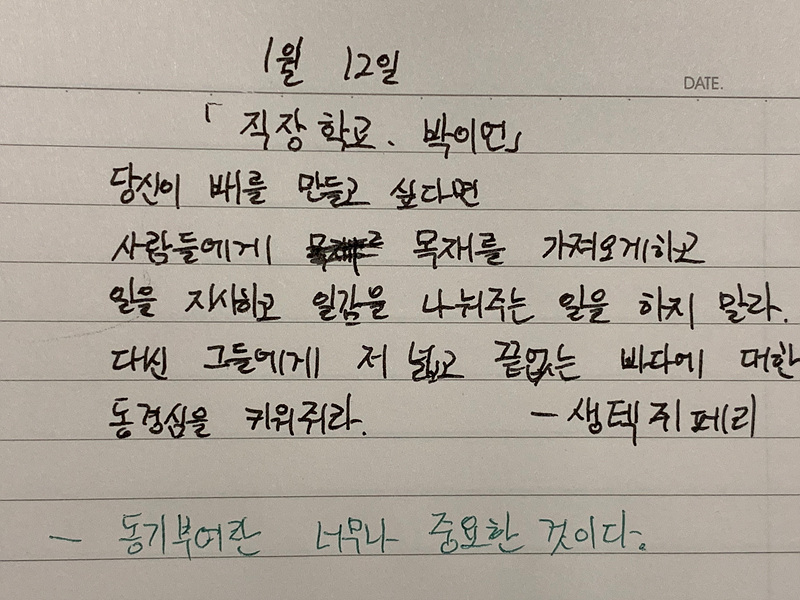 1월 12일
DATE.
「직장학교. 박이언」
당신이 배를 만들고 싶다면
사람들에게 목재를 가져오게하고
일을 지시하고 일감을 나눠주는 일을 하지 말라.
대신 그들에게 저 넓고 끝없는 바다에 대한
동경심을 키워줘라. - 생텍쥐페리
- 동기부여란 너무나 중요한 것이다.